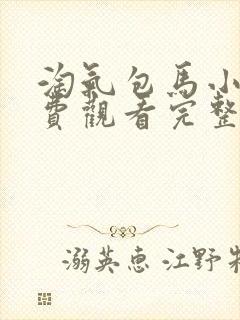 淘氣包馬小
費觀看完整
溺英惠 江野